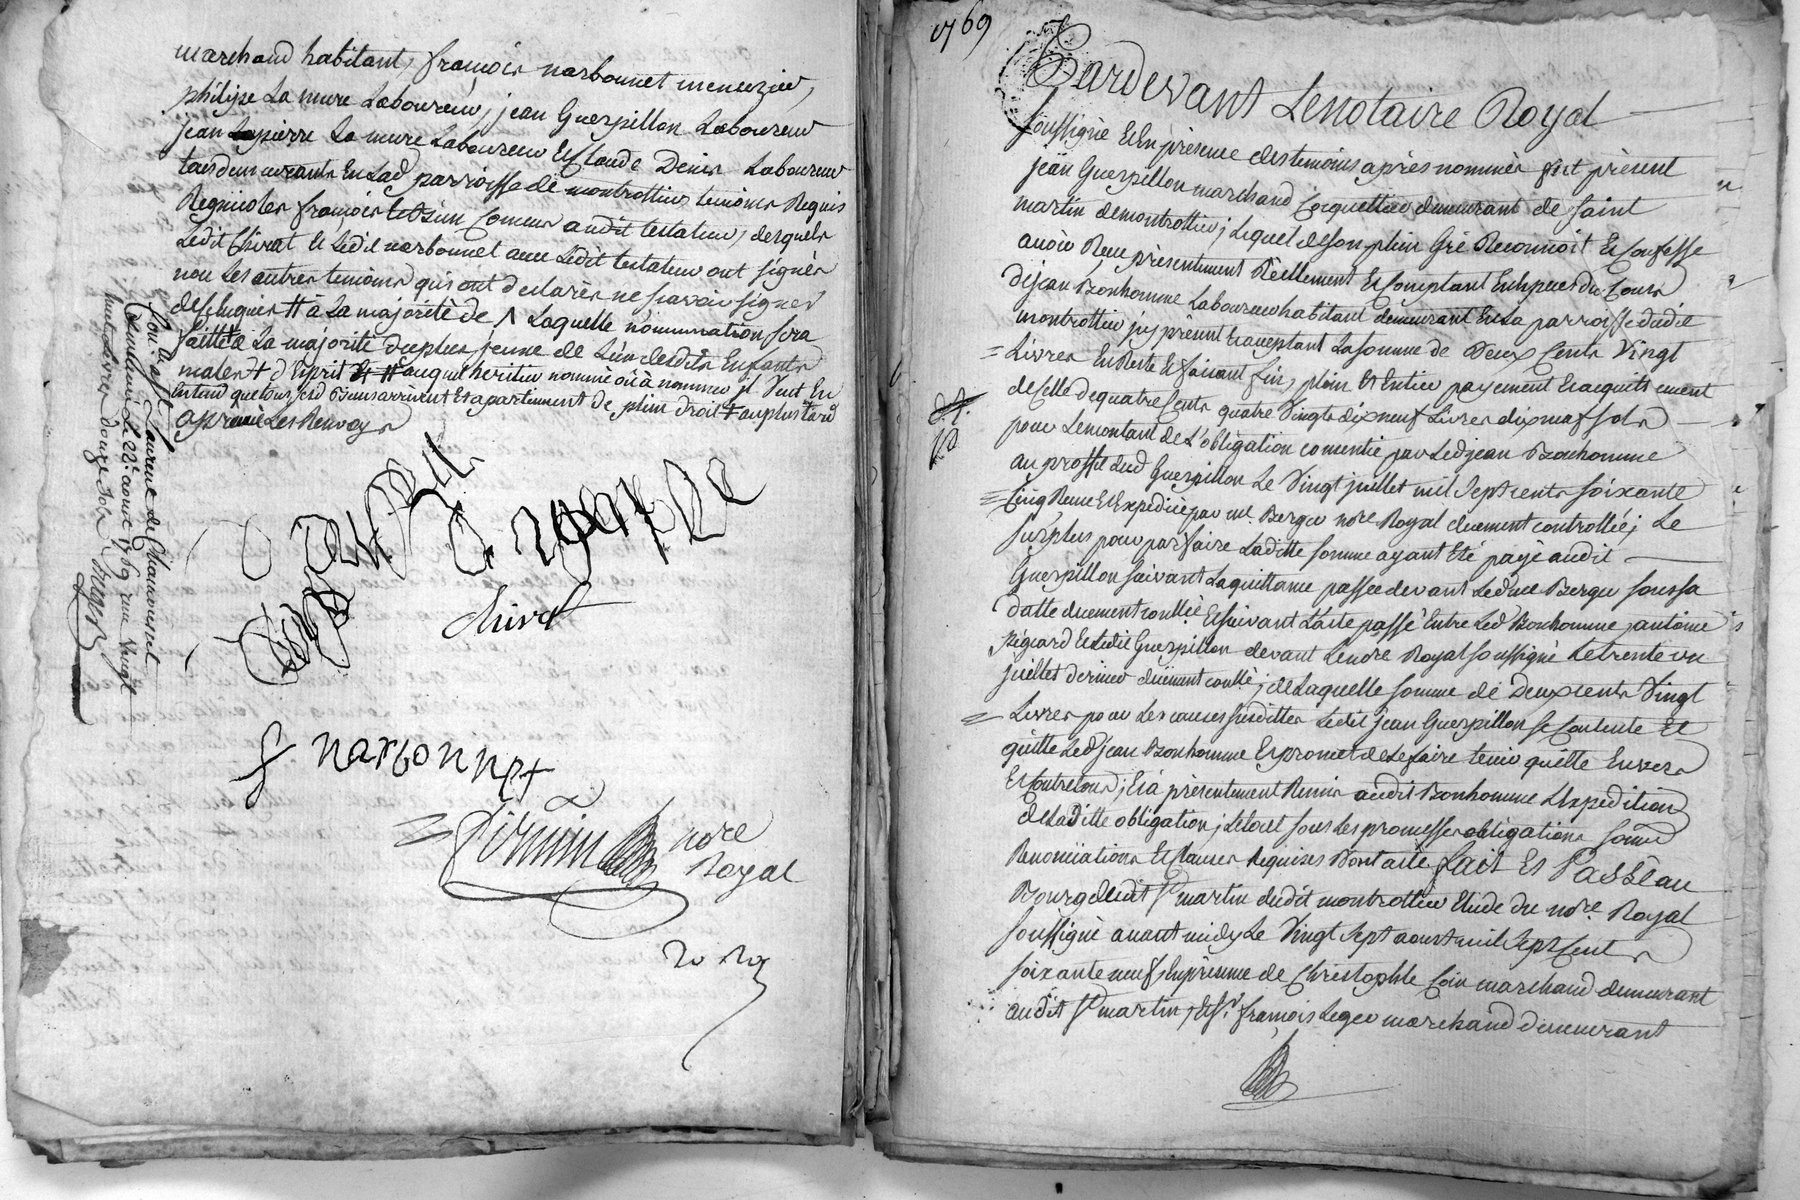 marchand habitant, françois narbonnet menuzier,
philipe La mure Laboureur, jean Guerpillon Laboureur
jean Lapierre La mure Laboureur Et Claude Denis Laboureur
tous demeurants En Lad parroisse de montrottier temoins Requis
Lesdit Chirat Et Ledit narbonnet avec Ledit testateur ont signés
non Les autres temoins qui ont declarés ne scavoir signer
de ce Requis # à La majorité de ^ Laquelle nomination sera
faitte à La majorité du plus jeune de L'un desdits Enfants
males + d'Esprit auquel heritier nommé où à nommer jl Veut En
Entend que tous sesd Biens arrivent Et apartiennent de plein droit + au plus tard
aprouvé Les Renvoys
chirat
f narbonnet
nore
Royal
Con.lé à St Laurent de Chamousset
Le 22e. aoust 1769 reçu Vingt
huit Livres douze sols
Berger
1769
Pardevant Le notaire Royal
soussigné Et En présence des temoins après nommés fut présent
jean Guerpillon marchand Coquettier demeurant de saint
martin de montrottier, Lequel de son plein Gré Reconnoit Et Confesse
avoir Reçu présentement Réellement Et Comptant En Espèces du Cours
de jean Bonhomme Laboureur habitant demeurant En La parroisse dudit
montrottier jcy présent Et aceptant La somme de Deux Cents Vingt
= Livres En Reste Et faisant fin, plein Et Entier payement Et acquittement
de Celle de quatre Cents quatre Vingts dix neuf Livres dix neuf sols
pour Le montant de L'obligation consentie par Led jean Bonhomme
au proffit dud Guerpillon Le Vingt juillet mil Sept cents soixante
= Cinq Reçue Et Expediée par me. Berger nore Royal duement controllée; Le
surplus pour parfaire Laditte somme ayant Eté payé audit
Guerpillon suivant La quittance passée devant Led me Berger sous sa
datte duement conllée Et suivant L'acte passé Entre Led Bonhomme, antoine
Pégeard Et Ledit Guerpillon devant Le nore Royal soussigné Le trente un
juillet dernier duëment conllé; de Laquelle somme de Deux cents Vingt
= Livres pour Les causes susdittes Ledit jean Guerpillon se Contente Et
quitte Led jean Bonhomme Et promet de Le faire tenir quitte Envers
Et Contre tous; Et à présentement Remis audit Bonhomme L'Expedition
de Laditte obligation; Le tout sous Les promesses obligations soumis
Renonciations Et Clauses Requises Dont acte fait Et Passé au
Bourg dudit St martin dudit montrottier Etude du nore. Royal
soussigné avant midy Le Vingt Sept aoust mil Sept Cent
soixante neuf, En présence de Christophle Coin marchand demeurant
audit St martin, Et Sr. françois Leger marchand demeurant